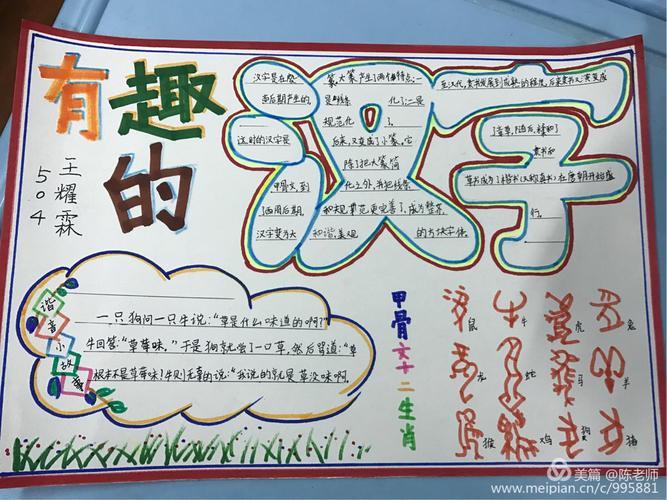 有趣的
汉字
王耀霖
504
汉字是在殷
商后期产生的,
这时的汉字是
甲骨文,到
了西周后期,
汉字变为大
篆,大篆产生了两个特点:一
是线条
化了,二是
规范化
了。
后来,又变成了小篆,它
除了把大篆简
化之外,并把线条
和规范更完善了,成为整齐
和谐,美观
的方块字体。
在汉代,隶书发展到成熟的
后来隶书又演变成
了章草,随后,糅和了
隶书和
草书成为了楷书(又称真书)在唐朝开始盛
行。
谐音小故事
一只狗问一只牛说:“草是什么味道的啊?”
牛回答:“草莓味。”于是狗就尝了一口草,然后骂道:“草
根本不是草莓味!牛则无辜的说:“我说的就是草没味啊。
甲骨文十二生肖
鼠 牛 虎 兔
龙 蛇 马 羊
猴 鸡 狗 猪
美篇 @陈老师
www.meipian.cn/c/995881